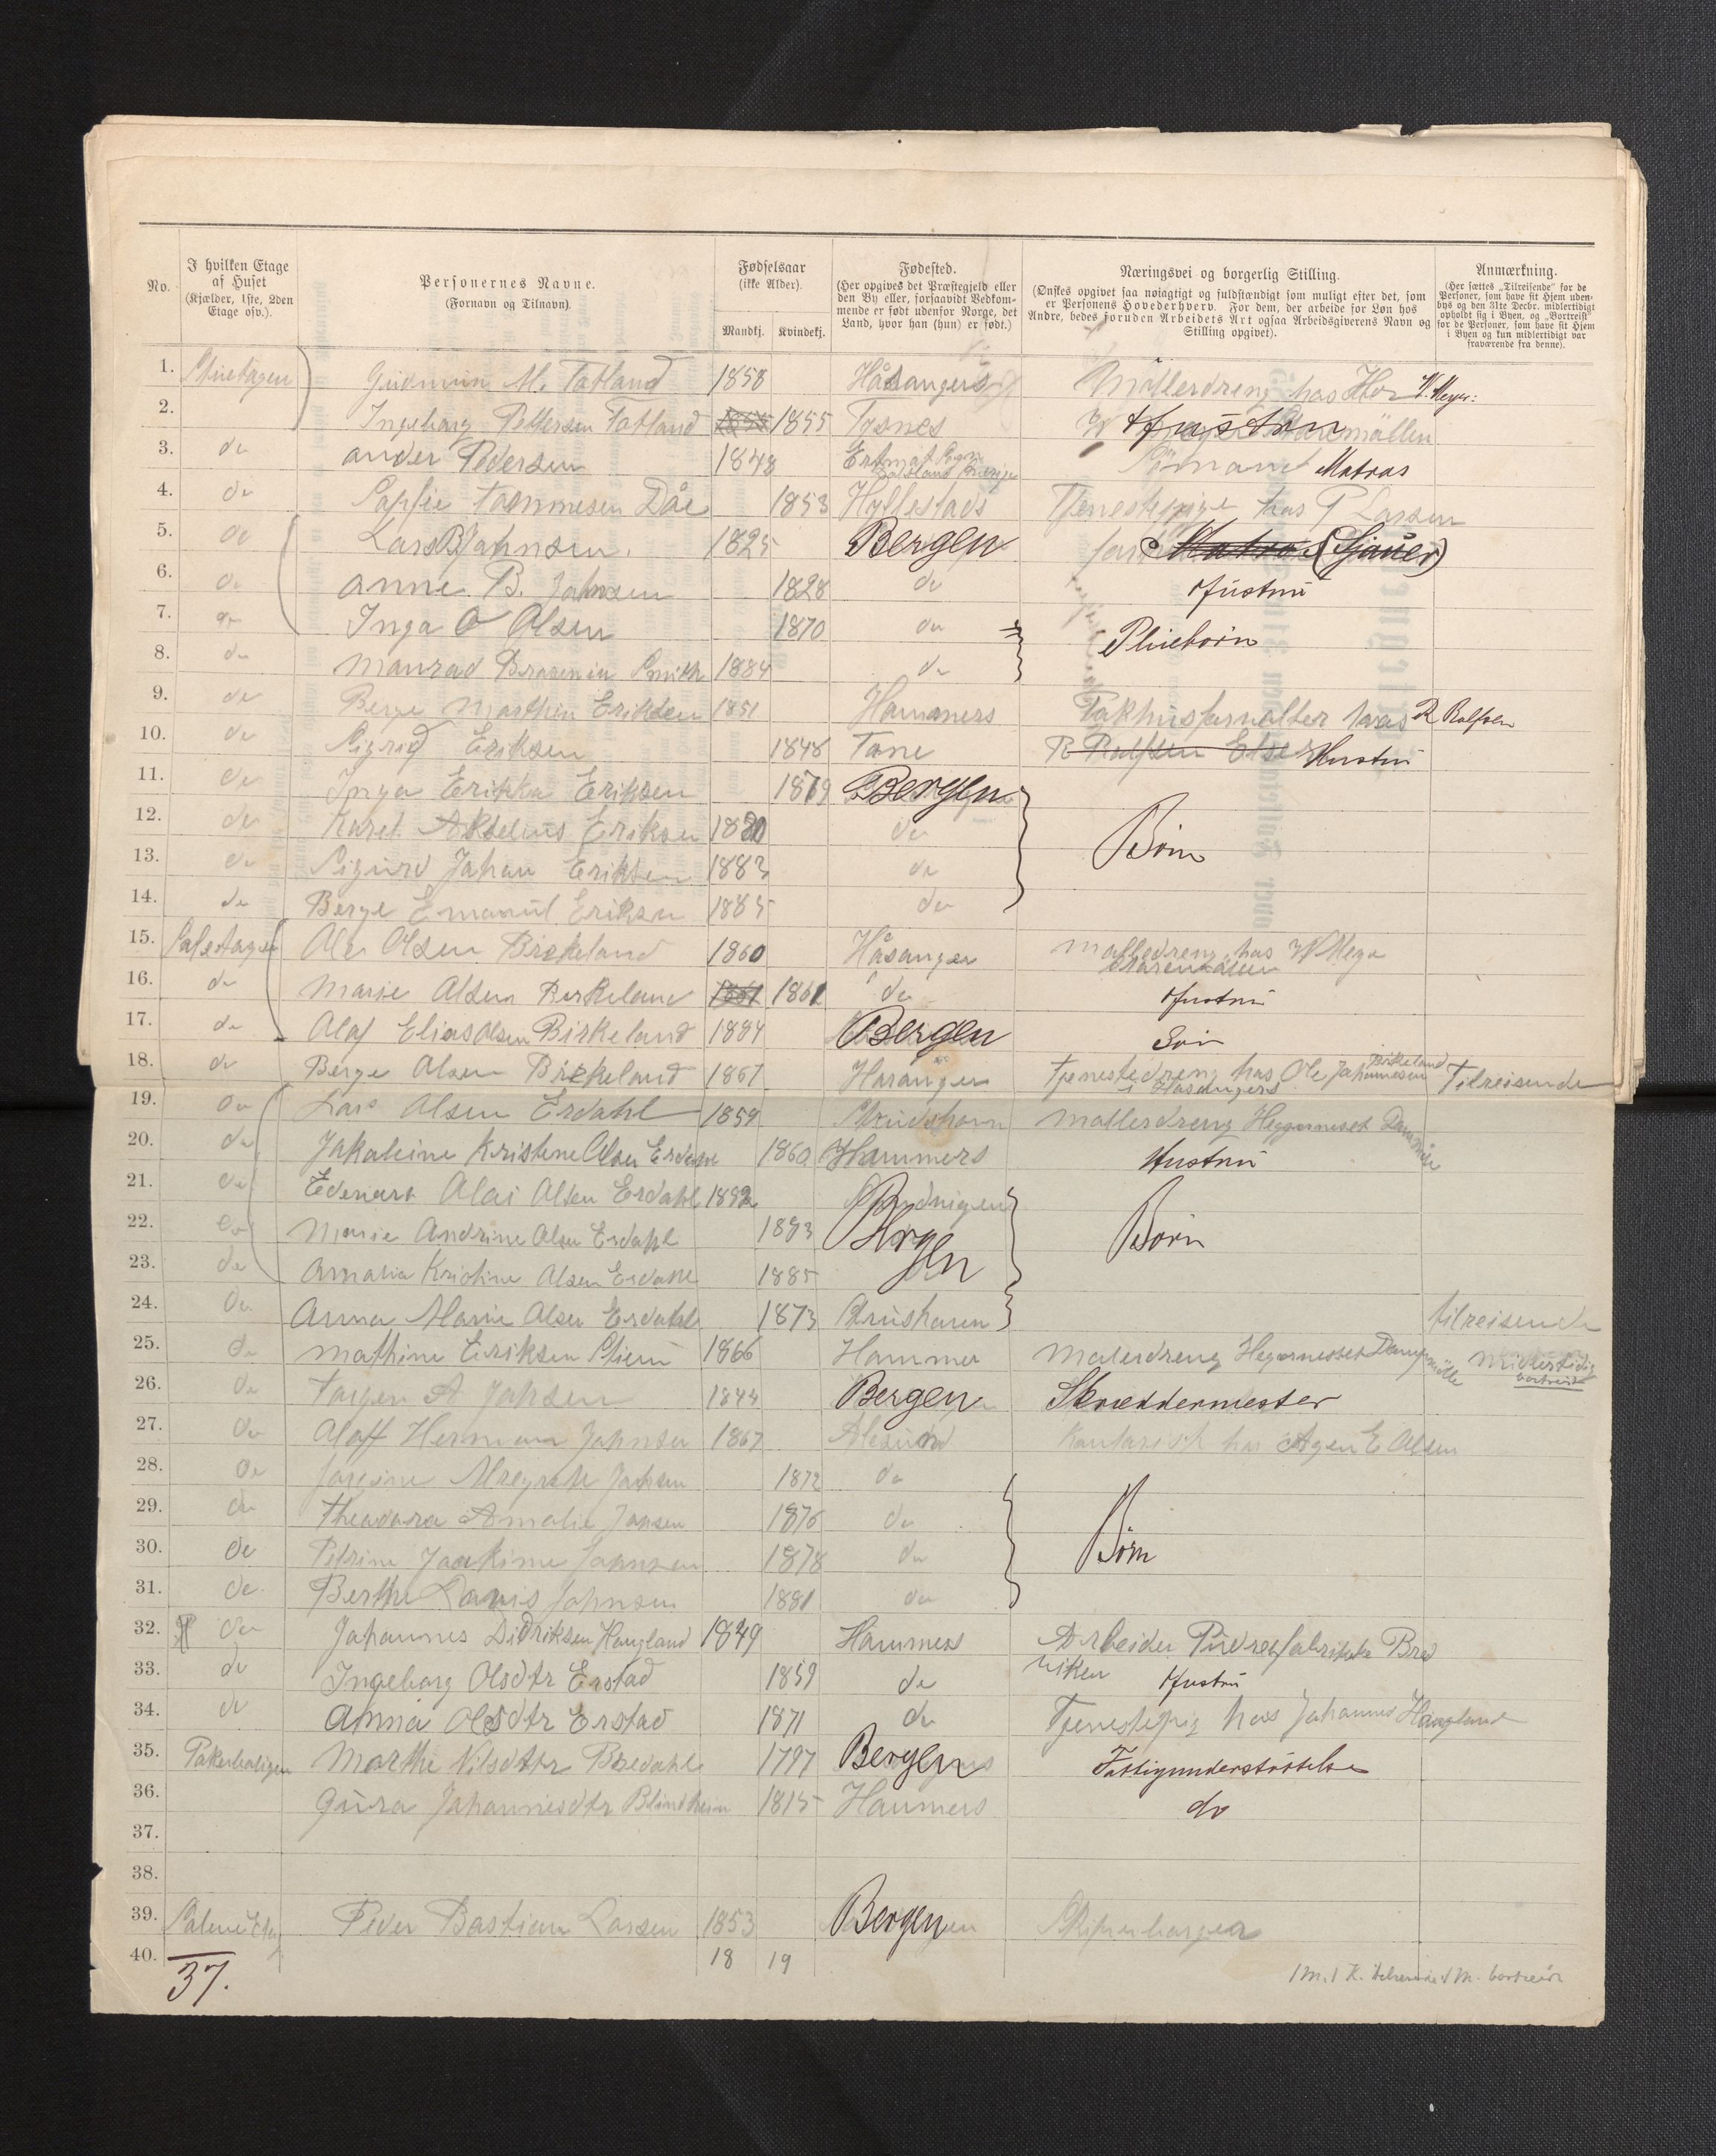 No.
I hvilken Etage af Huset (Kjælder, 1ste, 2den Etage osv.).
Personernes Navne. (Fornavn og Tilnavn).
Fødselsaar (ikke Alder).
Mandkj. Kvindekj.
Fødested. (Her opgives det Præstegjeld eller den By eller, forsaavidt Vedkommende er født udenfor Norge, det Land, hvor han (hun) er født.)
Næringsvei og borgerlig Stilling. (Ønskes opgivet saa nøiagtigt og fuldstændigt som muligt efter det, som er Personens Hovederhverv. For dem, der arbeide for Løn hos Andre, bedes foruden Arbeidets Art ogsaa Arbeidsgiverens Navn og Stilling opgivet).
Anmærkning. (Her sættes „Tilreisende" for de Personer, som have sit Hjem udenbys og den 31te Decbr. midlertidigt opholdt sig i Byen, og „Bortreist" for de Personer, som have sit Hjem i Byen og kun midlertidigt var fraværende fra denne).
1. Stuetagen M. Tatland 1858 Møllerdreng hos W. Meyer:
2. Ingeborg Pettersen Tatland 1855 Tysnes Hustru
3. do Ander Pedersen 1848 Sømand Matros
4. do Dåe 1853 Hyllestads Tjenestepige hos P Larsen
5. do Lars B Johnsen. 1825 Bergen (Sjauer)
6. do Anne. B. Johnsen 1828 do Hustru
7. do Inga O Olsen 1870 do Pleiebørn
8. do Smith 1884 do
9. do Berge Marthin Eriksen 1851 Hammers Pakhusforvalter hos R Rolfsen
10. do Sigrid Eriksen 1848 Hustru
11. do Inga Erikka Eriksen 1879 Bergen
12. do Karel Akselius Eriksen 1880 do Børn
13. do Sigurd Johan Eriksen 1883 do
14. do Berge Emanuil Eriksen 1885 do
15. Salsetagen Ole Olsen Birkeland 1860 Håsanger Mølledreng hos W Meyer
16. do Marie Olsen Berkeland 1861 do Hustru
17. do Olaf Elias Olsen Birkeland 1884 Bergen Søn
18. do Berge Olsen Birkeland 1867 Tjenestedreng hos Ole Johannesen Birkeland Tilreisende
19. do Lars Olsen Erdahl 1859 Møllerdreng Heggerneset
20. do Jakobine Kristene Olsen Erdahl 1860 Hammers Hustru
21. do Olai Olsen Erdahl 1882
22. do Marie Andrine Olsen Erdahl 1883 Bergen Børn
23. do Amalia Kristine Olsen Erdahl 1885
24. do Anna Marie Olsen Erdahl 1873 tilreisende
25. do Mathine Eriksen 1866 Hammer Mølerdreng Hegernesset Dampmølle midlertidig bortreist
26. do Torger A Johsen 1844 Bergen Skræddermester
27. do Oloff Herman Johnsen 1867 Alesund Kontorist hos Agen E Olsen
28. do Jorgine Johsen 1872 do
29. do Theodora Amalie Jonsen 1876 do
30. do Petrine Joakime Johnsen 1878 do Børn
31. do Berthe Lovis Johnsen 1881 do
32. do Johannes Didriksen Haugland 1849 Hammers Arbeider Pudretfabriken Bredviken
33. do Ingeborg Olsdtr Erstad 1859 do Hustru
34. do Anna Olsdtr Erstad 1871 do Tjenestepig hos Johannes Haugland
35. Marthe Nilsdtr Bredahl 1797 Bergen Fattigunderstøttelse
36. Gura Johannesdtr Blindheim 1815 Hammers do
37.
38.
39. Peder Bastian Larsen 1853 Bergen Skipsborger
40. 18 19
37.
1 M. 1 K. tilreisende 1 M. bortreist